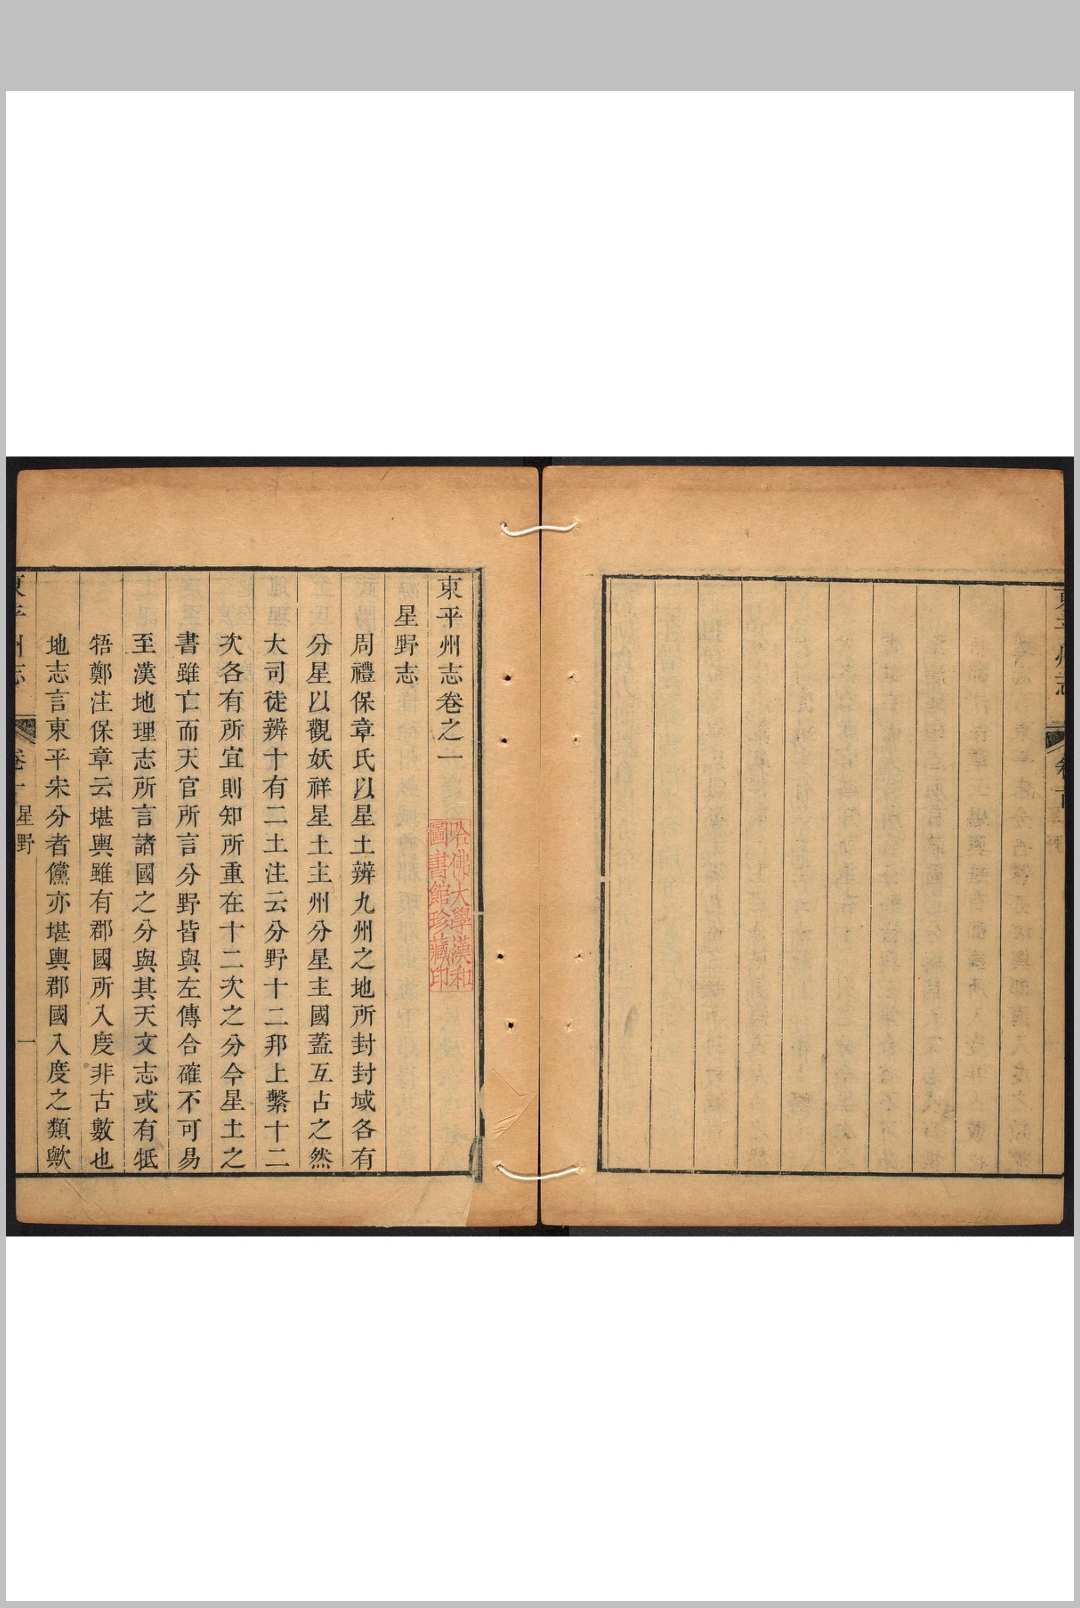 東平州志卷之一
星野志
周禮保章氏以星土辨九州之地所封封域各有
分星以觀妖祥星土主州分星主國蓋互占之然
大司徒辨十有二土注云分野十二邦上繫十二
次各有所宜則知所重在十二次之分今星土之
書雖亡而天官所言分野皆與左傳合確不可易
至漢地理志所言諸國之分與其天文志或有牴
牾鄭注保章云堪輿雖有郡國所入度非古數也
地志言東平朱分者儻亦堪輿郡國入度之類歟
東平州志
卷一
星野
一
哈佛大學漢和
圖書館珍藏印